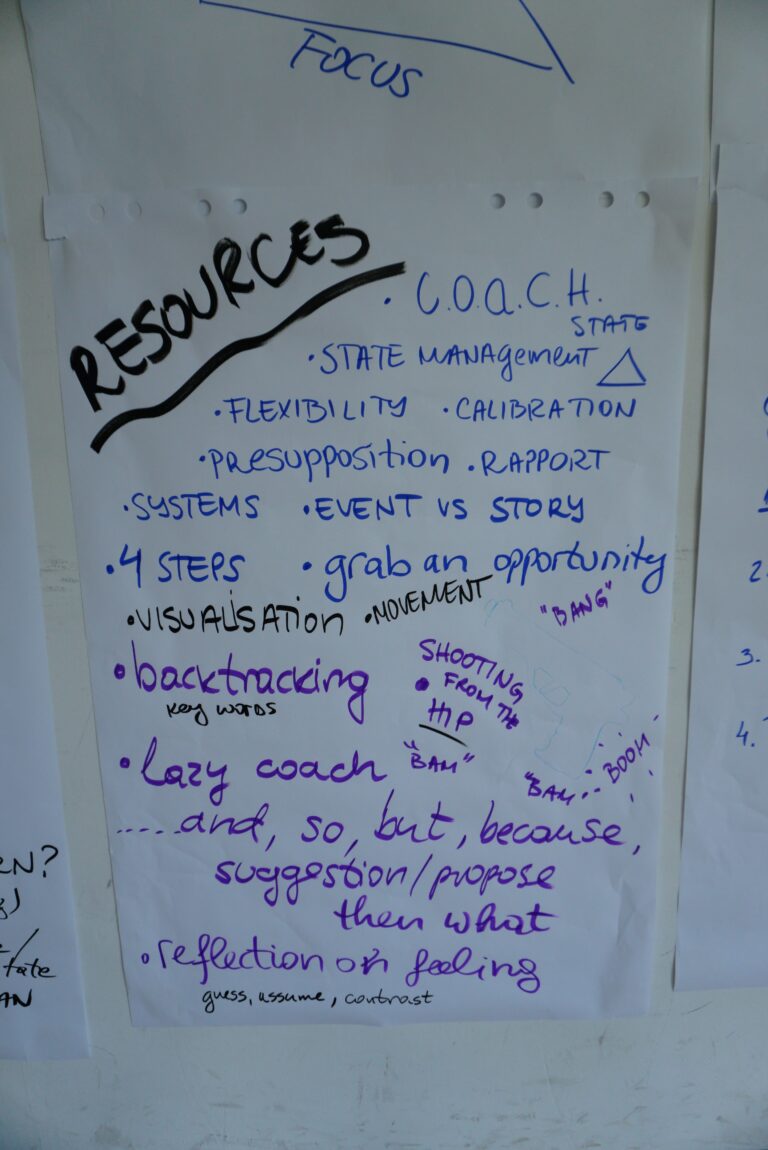 FOCUS
RESOURCES
• C.O.A.C.H.
STATE
• STATE MANAgement
• FLEXIBILITY • CALIBRATION
• PResupposition • RAPPORT
• SYSTEMS • EVENT VS STORY
• 4 STEPS • grab an opportunity
• VISUALISATion • MOVEMENT
"BANG"
• backtracking
key words
SHOOTING
• FROM THE
HIP
"BAM"
"BAM... BOOM
• lazy coach
.....and, so, but, because,
suggestion/propose
then what
• reflection on feeling
guess, assume, contrast
2.
3.
4.
EN?
tate
AN